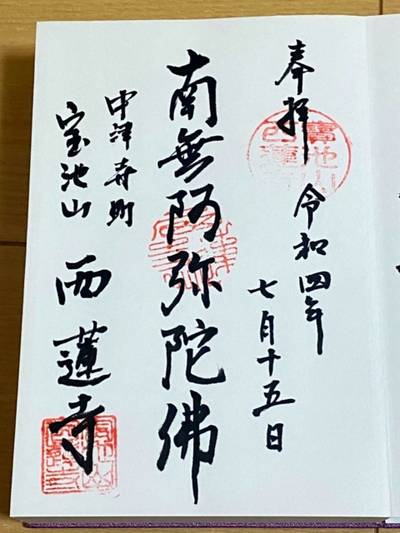 奉拝
令和四年
七月十五日
南無阿弥陀佛
中津寺町
宝池山 西蓮寺